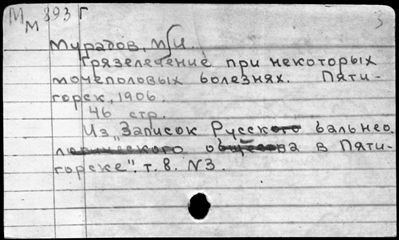 М 393 Г
М
3
Мурадов, П. И.
Грязелечение при некоторых
мочеполовых болезнях. Пяти-
горск, 1906.
46 стр.
Из „Записок Русского бальнео
логического общества в Пяти-
горске". т. 8. №3.